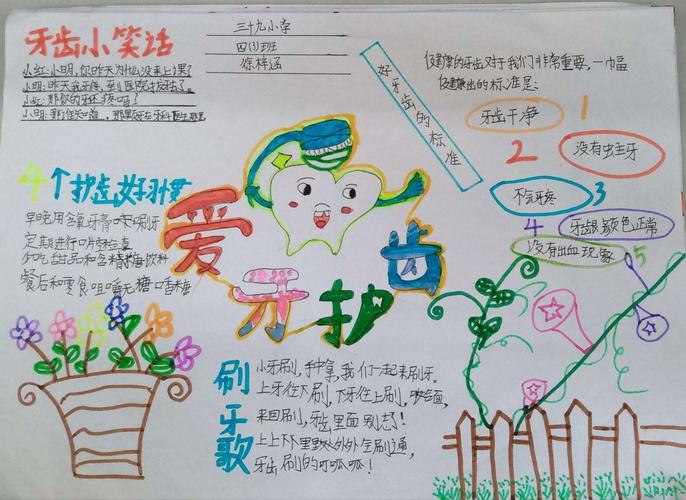 牙齿小笑话
小红:小明,你昨天为什么没来上课?
小明:昨天我牙疼,到医院拔牙了。
小红:那你的牙还疼吗?
小明:那谁知道,那颗牙在牙科医生那里
三十九小学
四(3)班
徐梓涵
好牙齿的标准
健康的牙齿对于我们非常重要,一口
健康的标准是:
牙齿干净 1
2 没有虫主牙
不觉牙疼 3
4 牙龈颜色正常
没有出血现象 5
4个护齿好习惯
早晚用含氟牙膏刷牙
定期进行口腔检查
少吃甜品和含糖饮料
餐后和零食咀嚼无糖口香糖
爱牙护齿
刷牙歌
小牙刷,手中拿,我们一起来刷牙。
上牙往下刷,下牙往上刷,咬合面,
来回刷,牙齿里面别忘了!
上上下下里里外外全刷遍,
牙齿刷的叮呱呱!